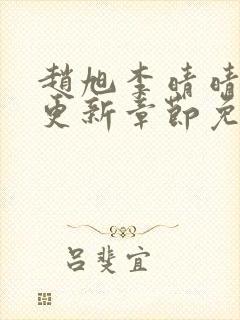 趙旭李晴晴
更新章節免
吕斐宜